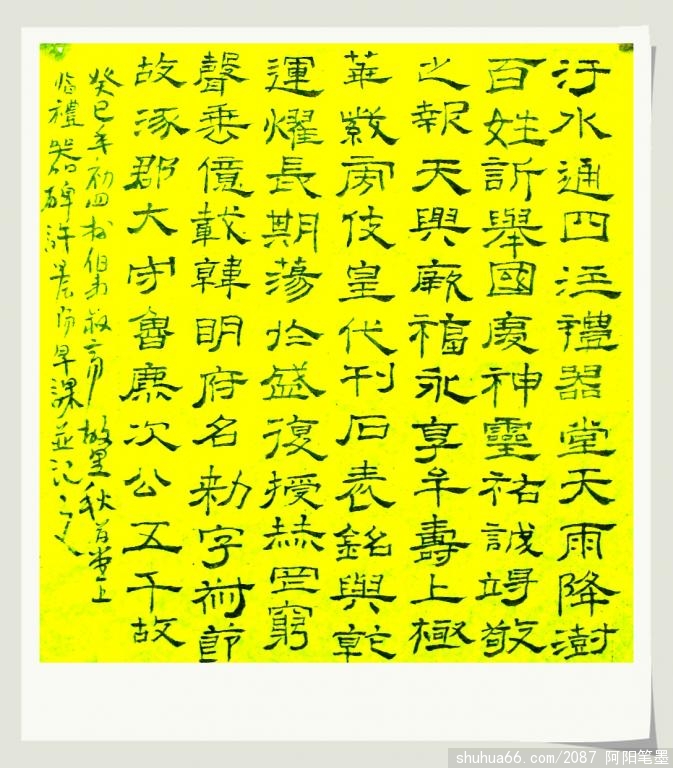 汙水通四注禮器堂天雨降澍
百姓訢舉國慶神靈祐誠竭敬
之報天與厥福永享牟壽上極
華紫旁伎皇代刊石表銘與乾
運耀長期蕩於盛復授赫罔窮
聲垂億載韓明府名勑字叔節
故涿郡大守魯麃次公五千故
癸巳年初四於伯故里秋
臨禮器碑許晨早課並記之
shuhua66.com/2087 阿阳笔墨